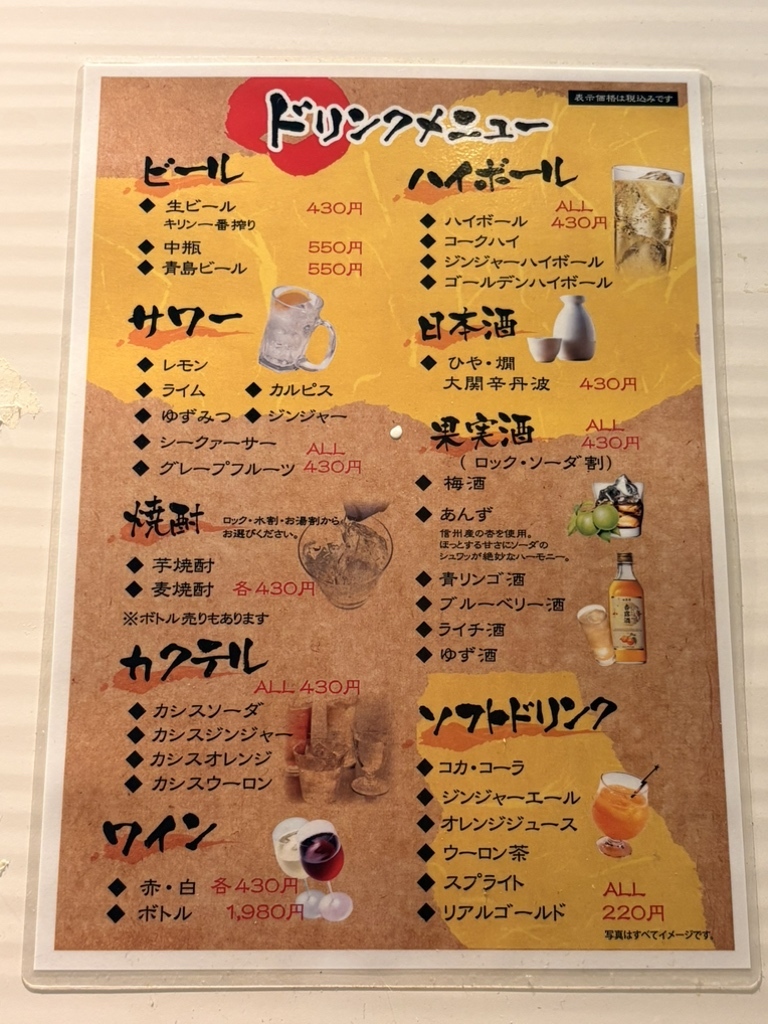 ドリンクメニュー
表示価格は税込みです
ビール
◆ 生ビール 430円
キリン一番搾り
◆ 中瓶 550円
◆ 青島ビール 550円
サワー
◆ レモン
◆ ライム ◆ カルピス
◆ ゆずみつ ◆ ジンジャー
◆ シークァーサー
◆ グレープフルーツ ALL 430円
焼酎 ロック・水割・お湯割から
お選びください。
◆ 芋焼酎
◆ 麦焼酎 各430円
※ボトル売りもあります
カクテル
ALL 430円
◆ カシスソーダ
◆ カシスジンジャー
◆ カシスオレンジ
◆ カシスウーロン
ワイン
◆ 赤・白 各430円
◆ ボトル 1,980円
ハイボール
ALL
◆ ハイボール 430円
◆ コークハイ
◆ ジンジャーハイボール
◆ ゴールデンハイボール
日本酒
◆ ひや・燗
大関辛丹波 430円
果実酒 ALL 430円
(ロック・ソーダ割)
◆ 梅酒
◆ あんず
信州産の杏を使用。
ほっとする甘さにソーダの
シュワッが絶妙なハーモニー。
◆ 青リンゴ酒
◆ ブルーベリー酒
◆ ライチ酒
◆ ゆず酒
ソフトドリンク
◆ コカ・コーラ
◆ ジンジャーエール
◆ オレンジジュース
◆ ウーロン茶
◆ スプライト
◆ リアルゴールド ALL 220円
写真はすべてイメージです。